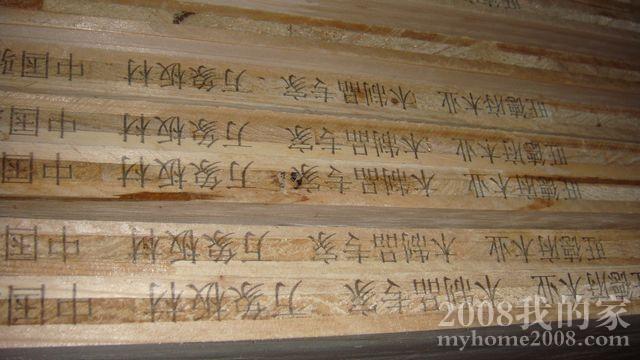 旺德府木业 木制品专家 万象板材 中国
旺德府木业 木制品专家 万象板材 中国
旺德府木业 木制品专家 万象板材 中国
旺德府木业 木制品专家 万象板材 中国
旺德府木业 木制品专家 万象板材 中国驰
旺德
2008我的家
myhome2008.com